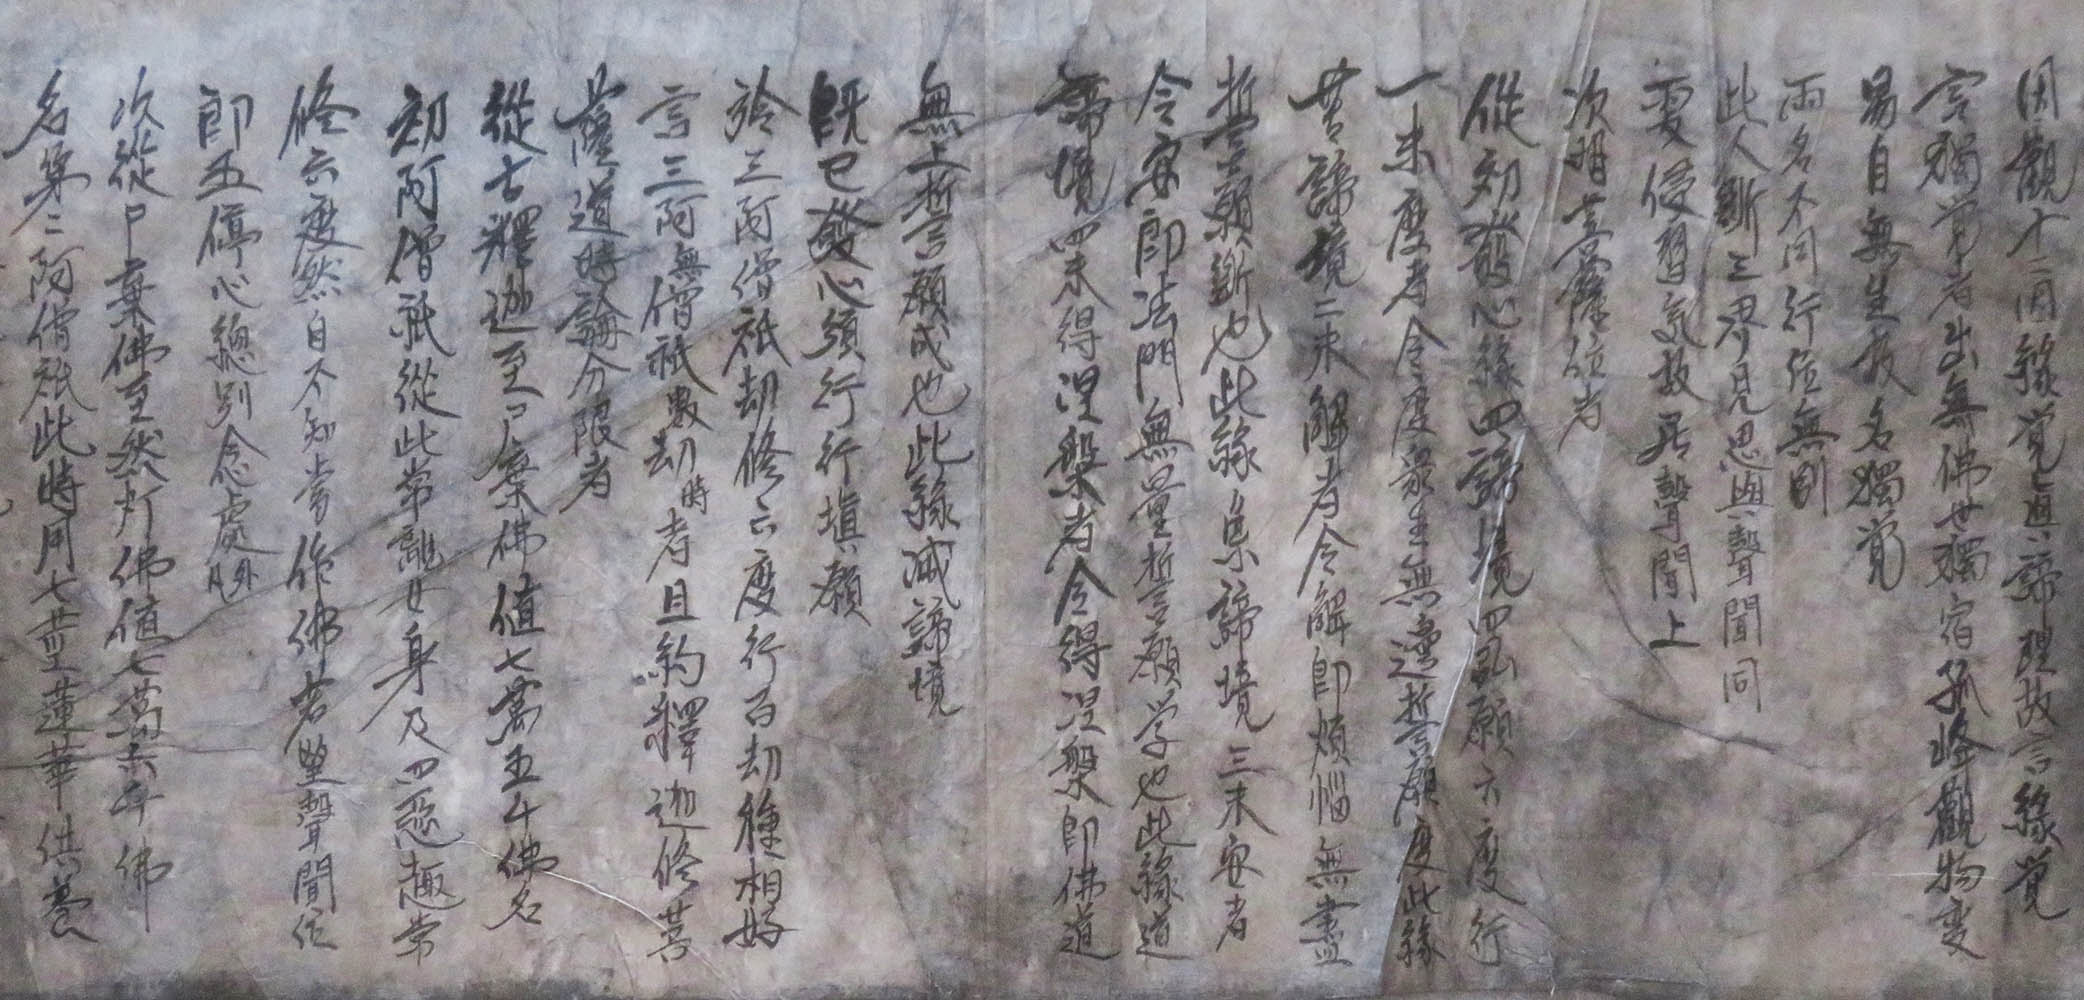 因觀十二因緣覺真諦理故言緣覺
言獨覺者出無佛世獨宿孤峰觀物變
易自無生故名獨覺
兩名不同行位無別
此人斷三界見思與聲聞同
更侵習気故居聲聞上
次明菩薩位者
從初發心緣四諦境四弘願六度行
一未度者令度衆生無邊誓願度此緣
苦諦境二未解者令解即煩惱無盡
誓願斷也此緣集諦境三未安者
令安即法門無量誓願学也此緣道
諦境四未得涅槃者令得涅槃即佛道
無上誓言願成也此緣滅諦境
既已發心須行行填願
於三阿僧祇劫修六度行百劫種相好
言三阿無僧祇數劫時者且約釋迦修菩
薩道時論分限者
從古釋迦至尸棄佛值七萬五千佛名
初阿僧祇從此常離女身及四惡趣常
修六度然自不知當作佛若望聲聞位
即五停心總別念處外凡
次從尸棄佛至然灯佛值七萬六千佛
名第二阿僧祇此時用七莖蓮華供養